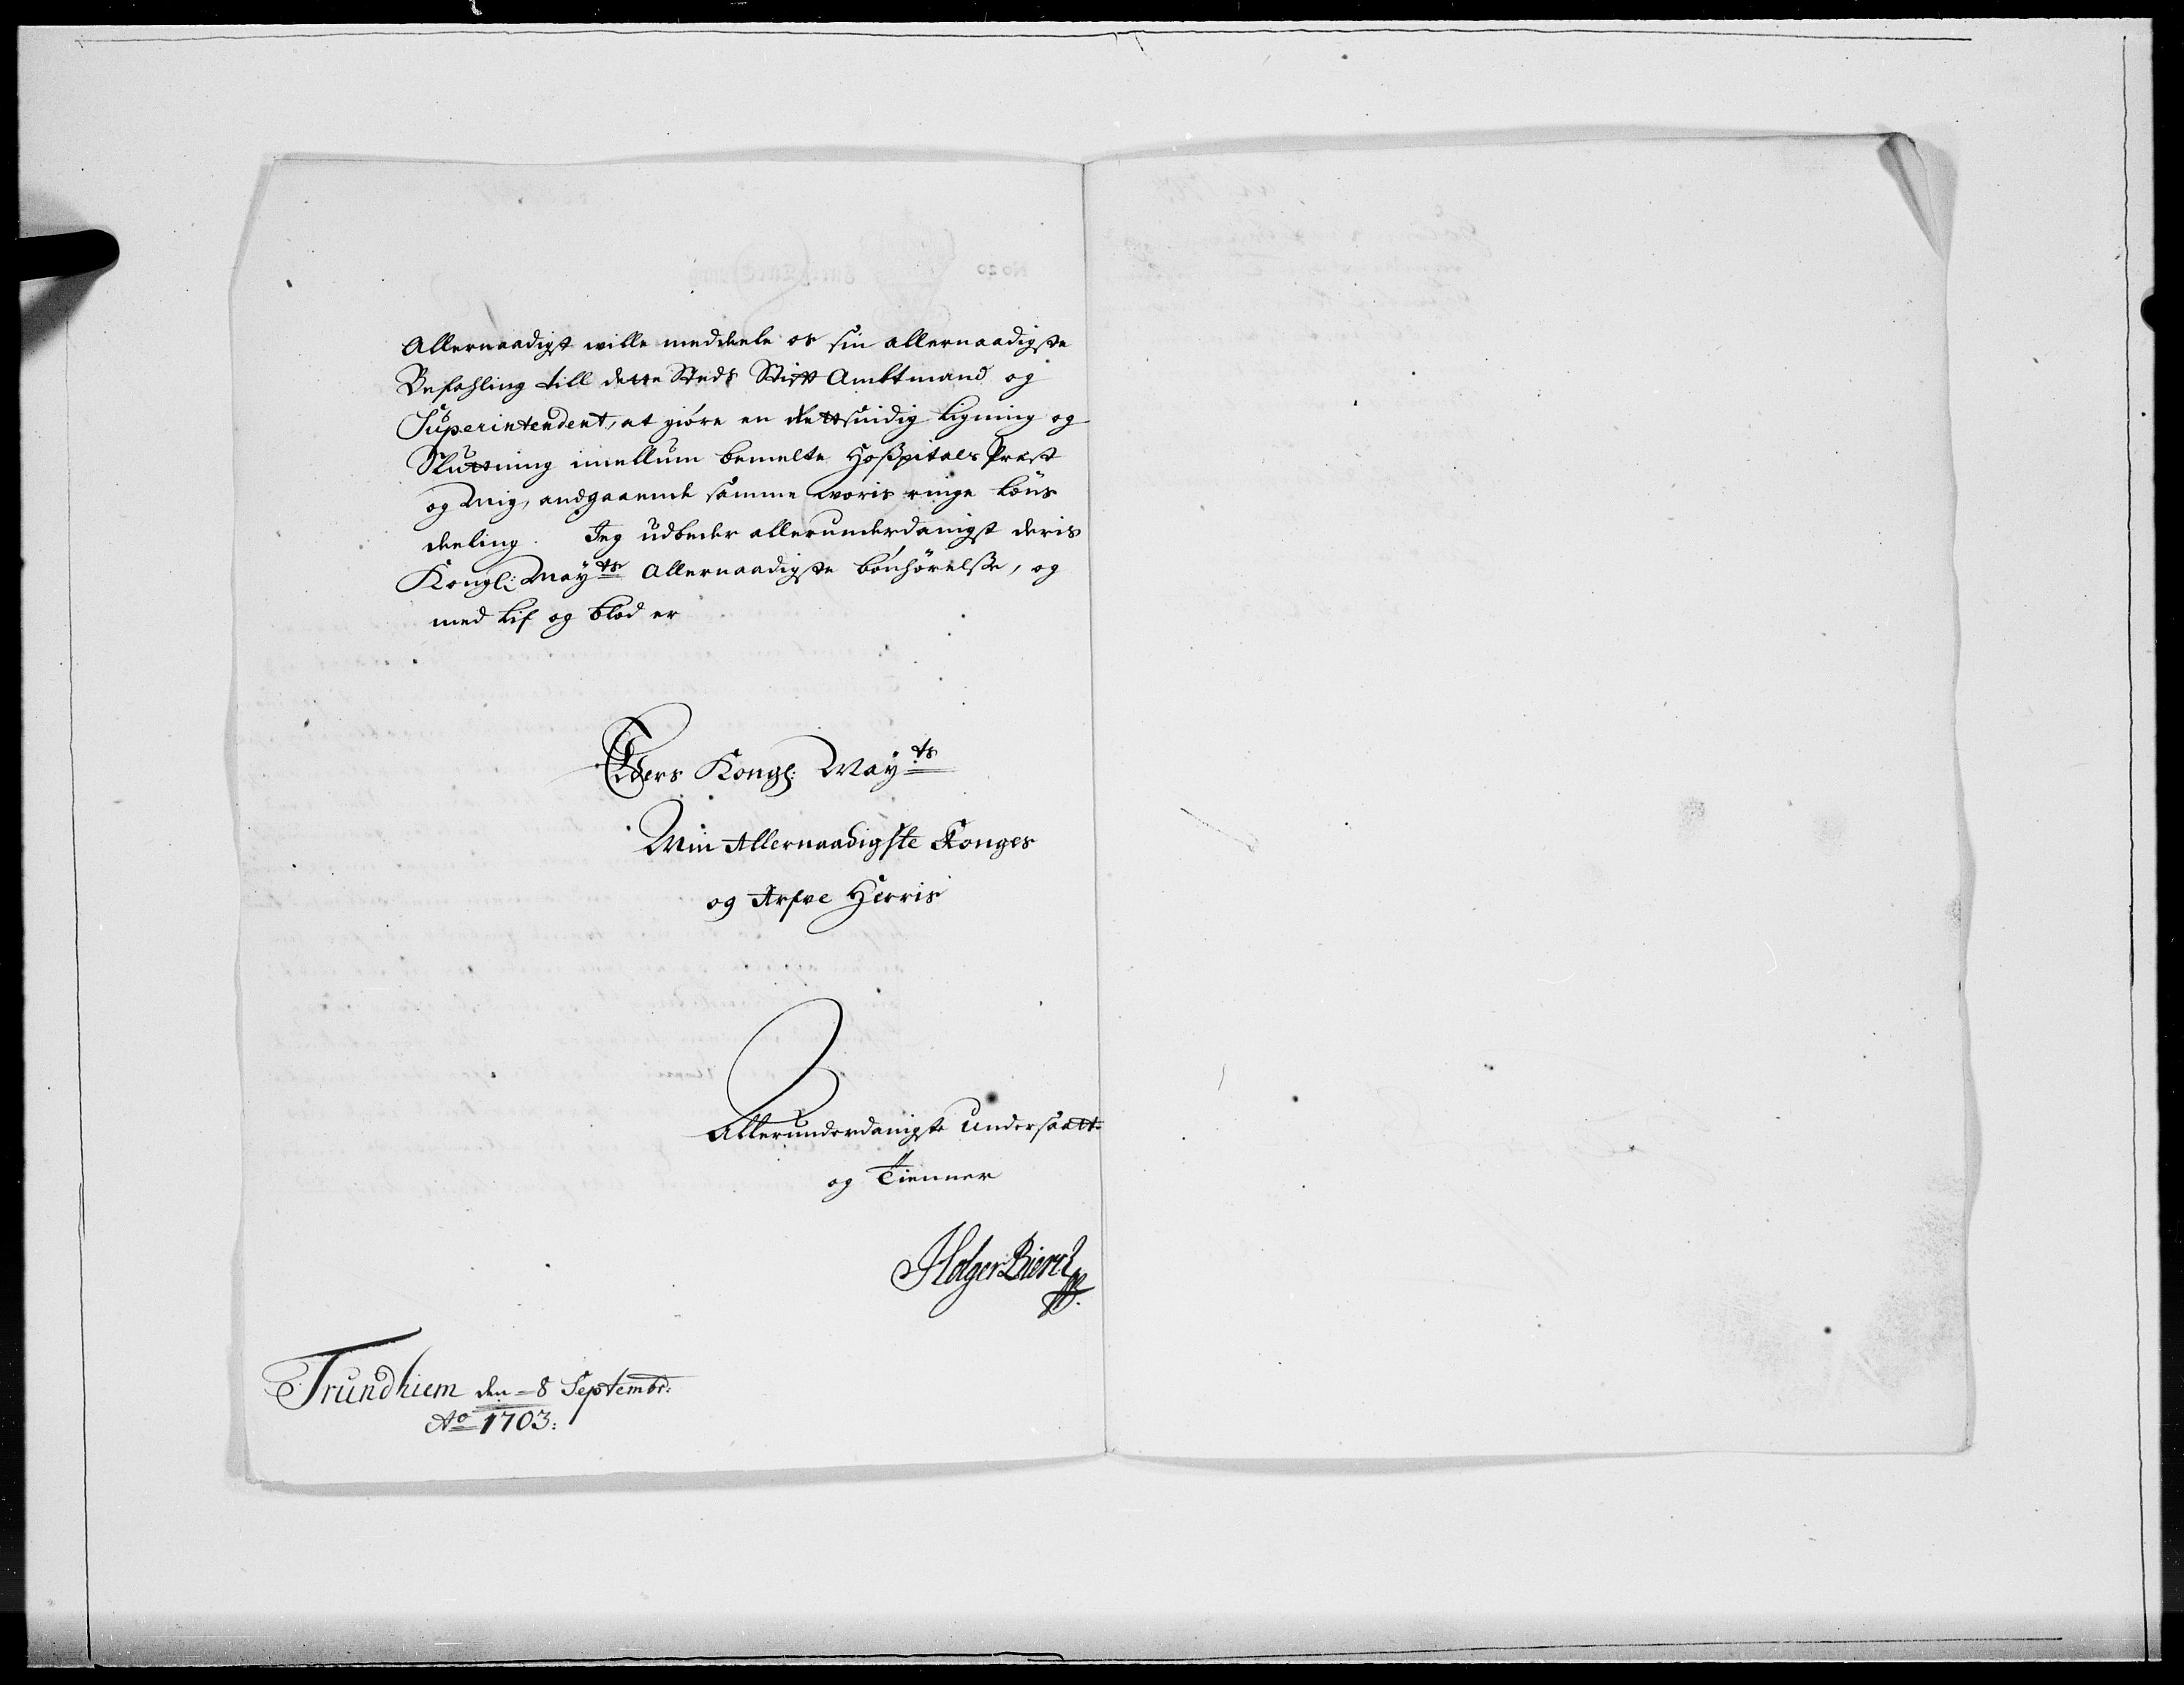 Allernaadigst wille meddeele os sin allernaadigste
Befahling till dette Steds Stift Ambtmand og
Superintendent, at giöre en rettsindig ligning og
Sluttning imellum bemelte Hoßpitals Præst
og Mig, andgaaende samme woris ringe löns
deeling. Jeg udbeder allerunderdanigst deris
Kongl: Mayts Allernaadigste bönhörelse, og
med Lif og blod er
Eders Kongl: Mayts
Min Allernaadigste Konges
og Arfve Herris
Allerunderdanigste undersaatt
og Tienner
Holger
Trundhiem den 8 Septembr:
Ao 1703: